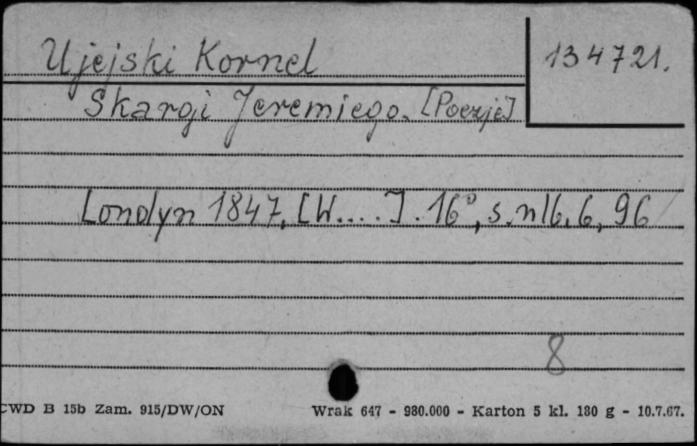 Ujejski Kornel
134721.
Skargi Jeremiego. [Poezje]
Londyn 1847, [W....]. 16°, s. nlb. 6, 96
8
CWD B 15b Zam. 915/DW/ON
Wrak 647 - 980.000 - Karton 5 kl. 180 g - 10.7.67.